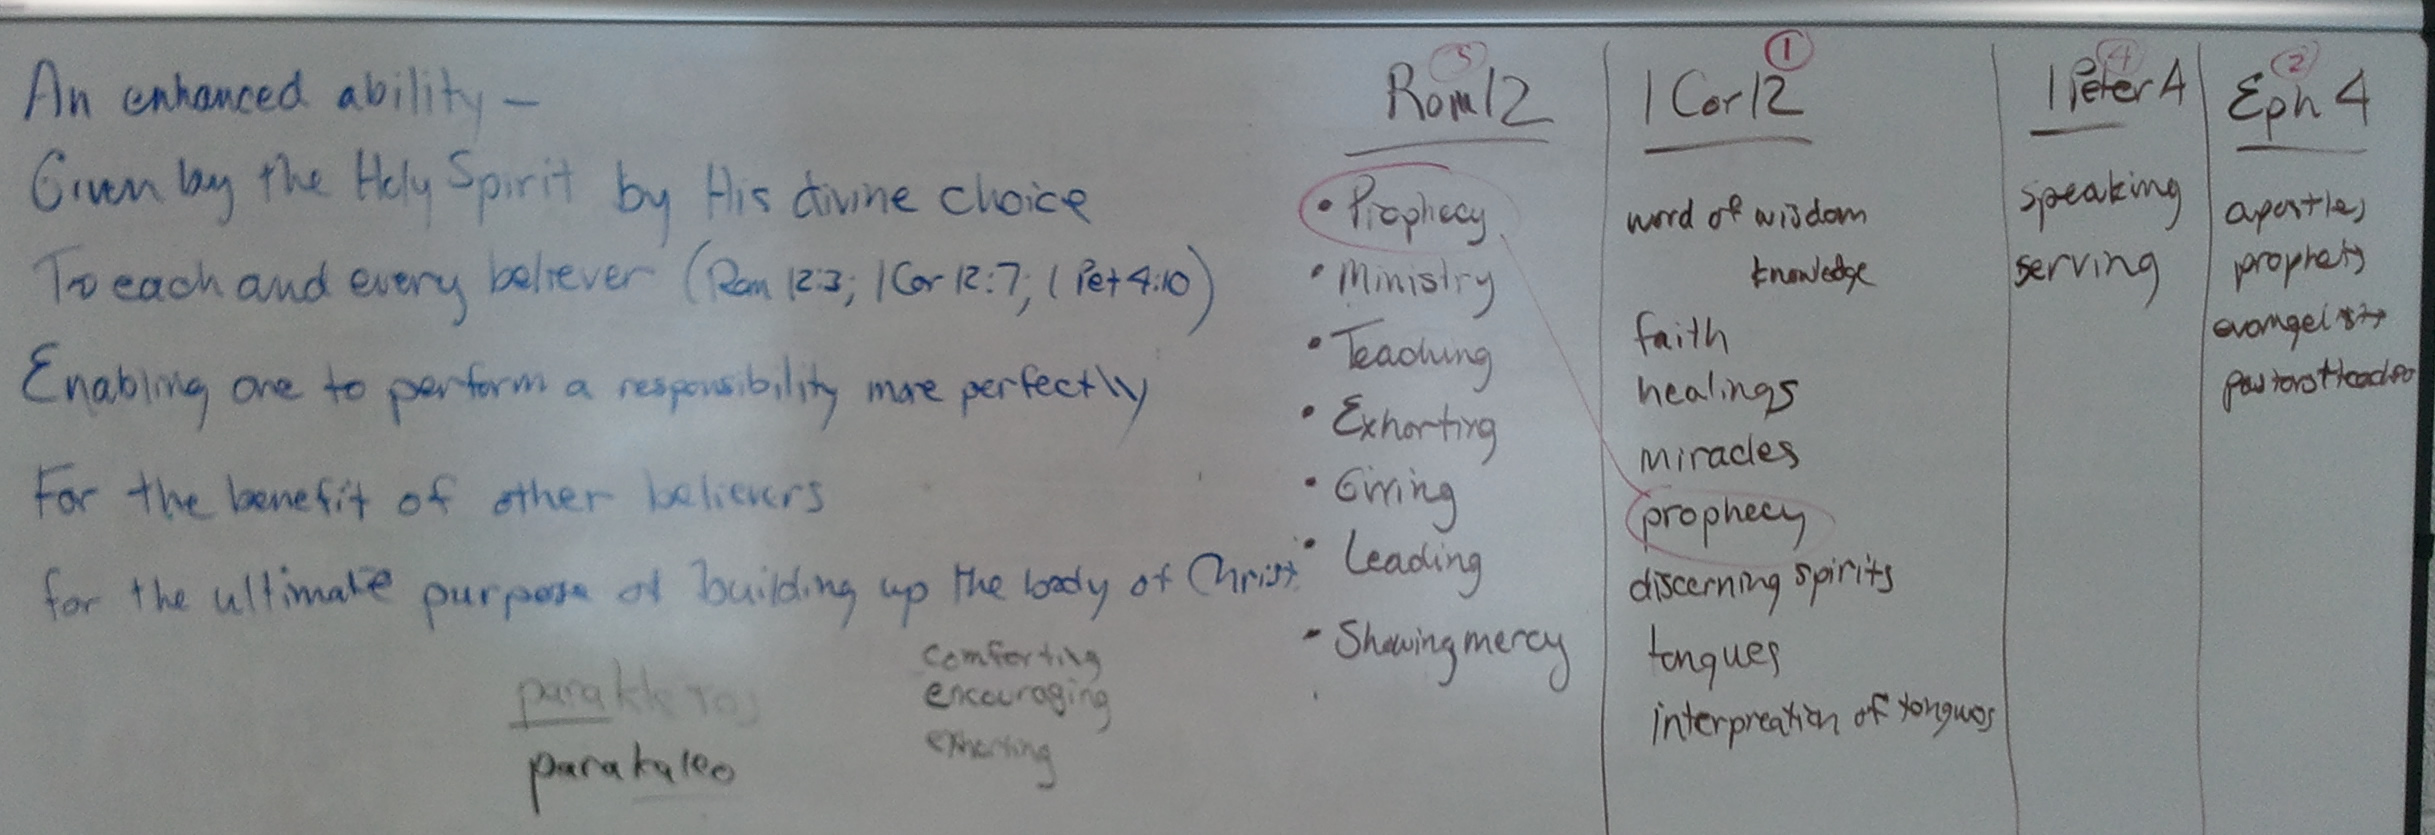 An enhanced ability –
Given by the Holy Spirit by His divine choice
To each and every believer (Rom 12:3; 1 Cor 12:7; 1 Pet 4:10)
Enabling one to perform a responsibility more perfectly
For the benefit of other believers
for the ultimate purpose of building up the body of Christ.
parakletos
parakaleo
comforting
encouraging
exhorting
3
Rom 12
• Prophecy
• Ministry
• Teaching
• Exhorting
• Giving
• Leading
• Showing mercy
1
1 Cor 12
word of wisdom
knowledge
faith
healings
miracles
prophecy
discerning spirits
tongues
interpreation of tongues
4
1 Peter 4
speaking
serving
2
Eph 4
apostles
prophets
evangelists
pastors + teacher